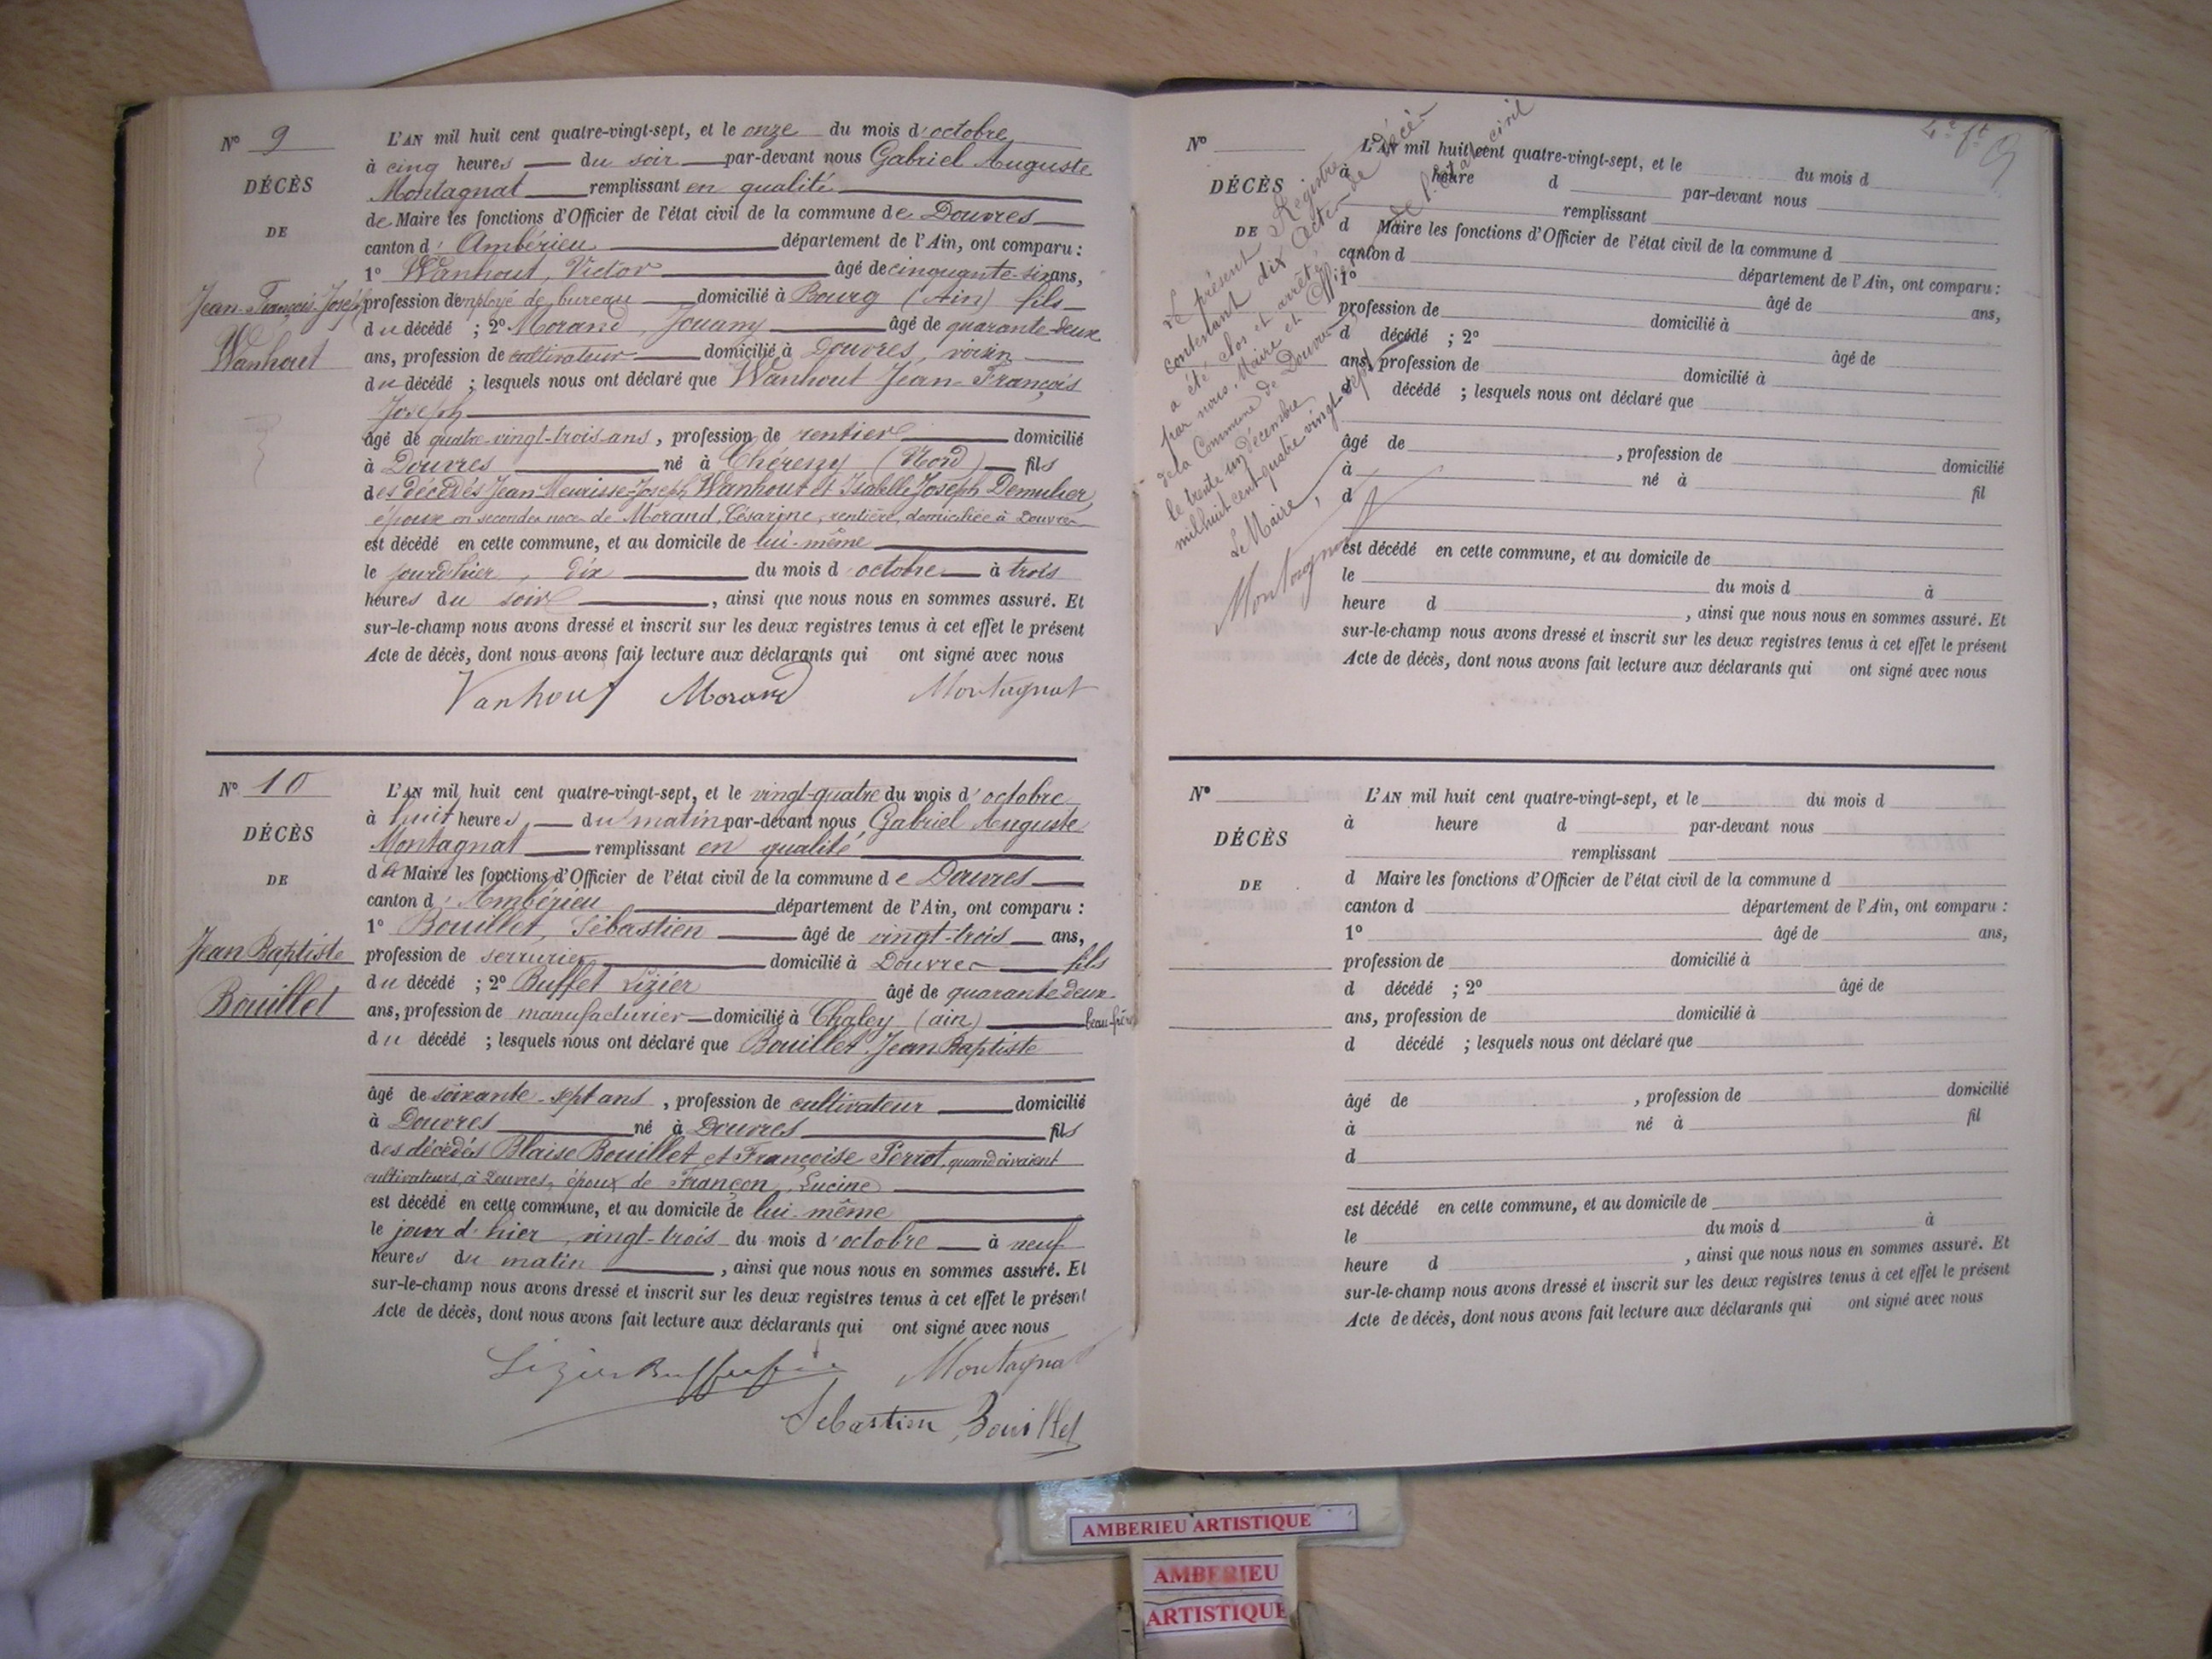 N° 9
DÉCÈS
DE
Jean-François-Joseph
Wanhout
L'AN mil huit cent quatre-vingt-sept, et le onze du mois d'octobre
à cinq heures du soir par-devant nous Gabriel Auguste
Montagnat remplissant en qualité
de Maire les fonctions d'Officier de l'état civil de la commune de Douvres
canton d'Ambérieu département de l'Ain, ont comparu :
1° Wanhout, Victor âgé de cinquante-six ans,
profession d'employé de bureau domicilié à Bourg (Ain) fils
du décédé ; 2° Morand, Jouany âgé de quarante-deux
ans, profession de cultivateur domicilié à Douvres, voisin
du décédé ; lesquels nous ont déclaré que Wanhout Jean-François
Joseph
âgé de quatre-vingt-trois ans, profession de rentier domicilié
à Douvres né à Chéreny (Nord) fils
des décédés Jean Meurisse-Joseph Wanhout et Isabelle Joseph Demulier,
époux en secondes noces de Morand, Césarine, rentière, domiciliée à Douvres
est décédé en cette commune, et au domicile de lui-même
le jourd'hier, dix du mois d'octobre à trois
heures du soir, ainsi que nous nous en sommes assuré. Et
sur-le-champ nous avons dressé et inscrit sur les deux registres tenus à cet effet le présent
Acte de décès, dont nous avons fait lecture aux déclarants qui ont signé avec nous
Vanhout Morand Montagnat
N° 10
DÉCÈS
DE
Jean Baptiste
Bouillet
L'AN mil huit cent quatre-vingt-sept, et le vingt-quatre du mois d'octobre
à huit heures du matin par-devant nous Gabriel Auguste
Montagnat remplissant en qualité
de Maire les fonctions d'Officier de l'état civil de la commune de Douvres
canton d'Ambérieu département de l'Ain, ont comparu :
1° Bouillet, Sébastien âgé de vingt-trois ans,
profession de serrurier domicilié à Douvres fils
du décédé ; 2° Buffet Lizier âgé de quarante deux
ans, profession de manufacturier domicilié à Chaley (ain) beau-frère
du décédé ; lesquels nous ont déclaré que Bouillet, Jean Baptiste
âgé de soixante-sept ans, profession de cultivateur domicilié
à Douvres né à Douvres fils
des décédés Blaise Bouillet et Françoise Perrot, quand vivaient
cultivateurs à Douvres, époux de Françon, Lucine
est décédé en cette commune, et au domicile de lui-même
le jour d'hier, vingt-trois du mois d'octobre à neuf
heures du matin, ainsi que nous nous en sommes assuré. Et
sur-le-champ nous avons dressé et inscrit sur les deux registres tenus à cet effet le présent
Acte de décès, dont nous avons fait lecture aux déclarants qui ont signé avec nous
Lizier Buffet Montagnat
Sebastien Bouillet
Le présent Registre de décès
contenant dix Actes de
a été clos et arrêté
par nous, Maire et Officier de l'état civil
de la Commune de Douvres
le trente-un décembre
mil huit cent quatre vingt-sept
Le Maire,
Montagnat
N°
DÉCÈS
DE
L'AN mil huit cent quatre-vingt-sept, et le du mois d
à heure d par-devant nous
remplissant
d Maire les fonctions d'Officier de l'état civil de la commune d
canton d département de l'Ain, ont comparu :
1° âgé de ans,
profession de domicilié à
d décédé ; 2° âgé de
ans, profession de domicilié à
d décédé ; lesquels nous ont déclaré que
âgé de , profession de domicilié
à né à fil
d
est décédé en cette commune, et au domicile de
le du mois d à
heure d , ainsi que nous nous en sommes assuré. Et
sur-le-champ nous avons dressé et inscrit sur les deux registres tenus à cet effet le présent
Acte de décès, dont nous avons fait lecture aux déclarants qui ont signé avec nous
N°
DÉCÈS
DE
L'AN mil huit cent quatre-vingt-sept, et le du mois d
à heure d par-devant nous
remplissant
d Maire les fonctions d'Officier de l'état civil de la commune d
canton d département de l'Ain, ont comparu :
1° âgé de ans,
profession de domicilié à
d décédé ; 2° âgé de
ans, profession de domicilié à
d décédé ; lesquels nous ont déclaré que
âgé de , profession de domicilié
à né à fil
d
est décédé en cette commune, et au domicile de
le du mois d à
heure d , ainsi que nous nous en sommes assuré. Et
sur-le-champ nous avons dressé et inscrit sur les deux registres tenus à cet effet le présent
Acte de décès, dont nous avons fait lecture aux déclarants qui ont signé avec nous
AMBERIEU ARTISTIQUE
AMBERIEU
ARTISTIQUE